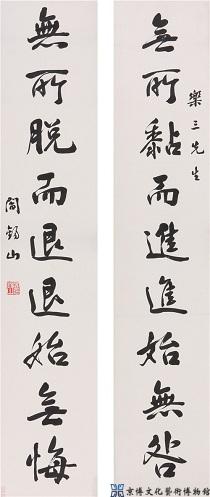 樂三先生
無所黏而進進始無咎
無所脱而退退始無悔
閻錫山
京博文化藝術博物館